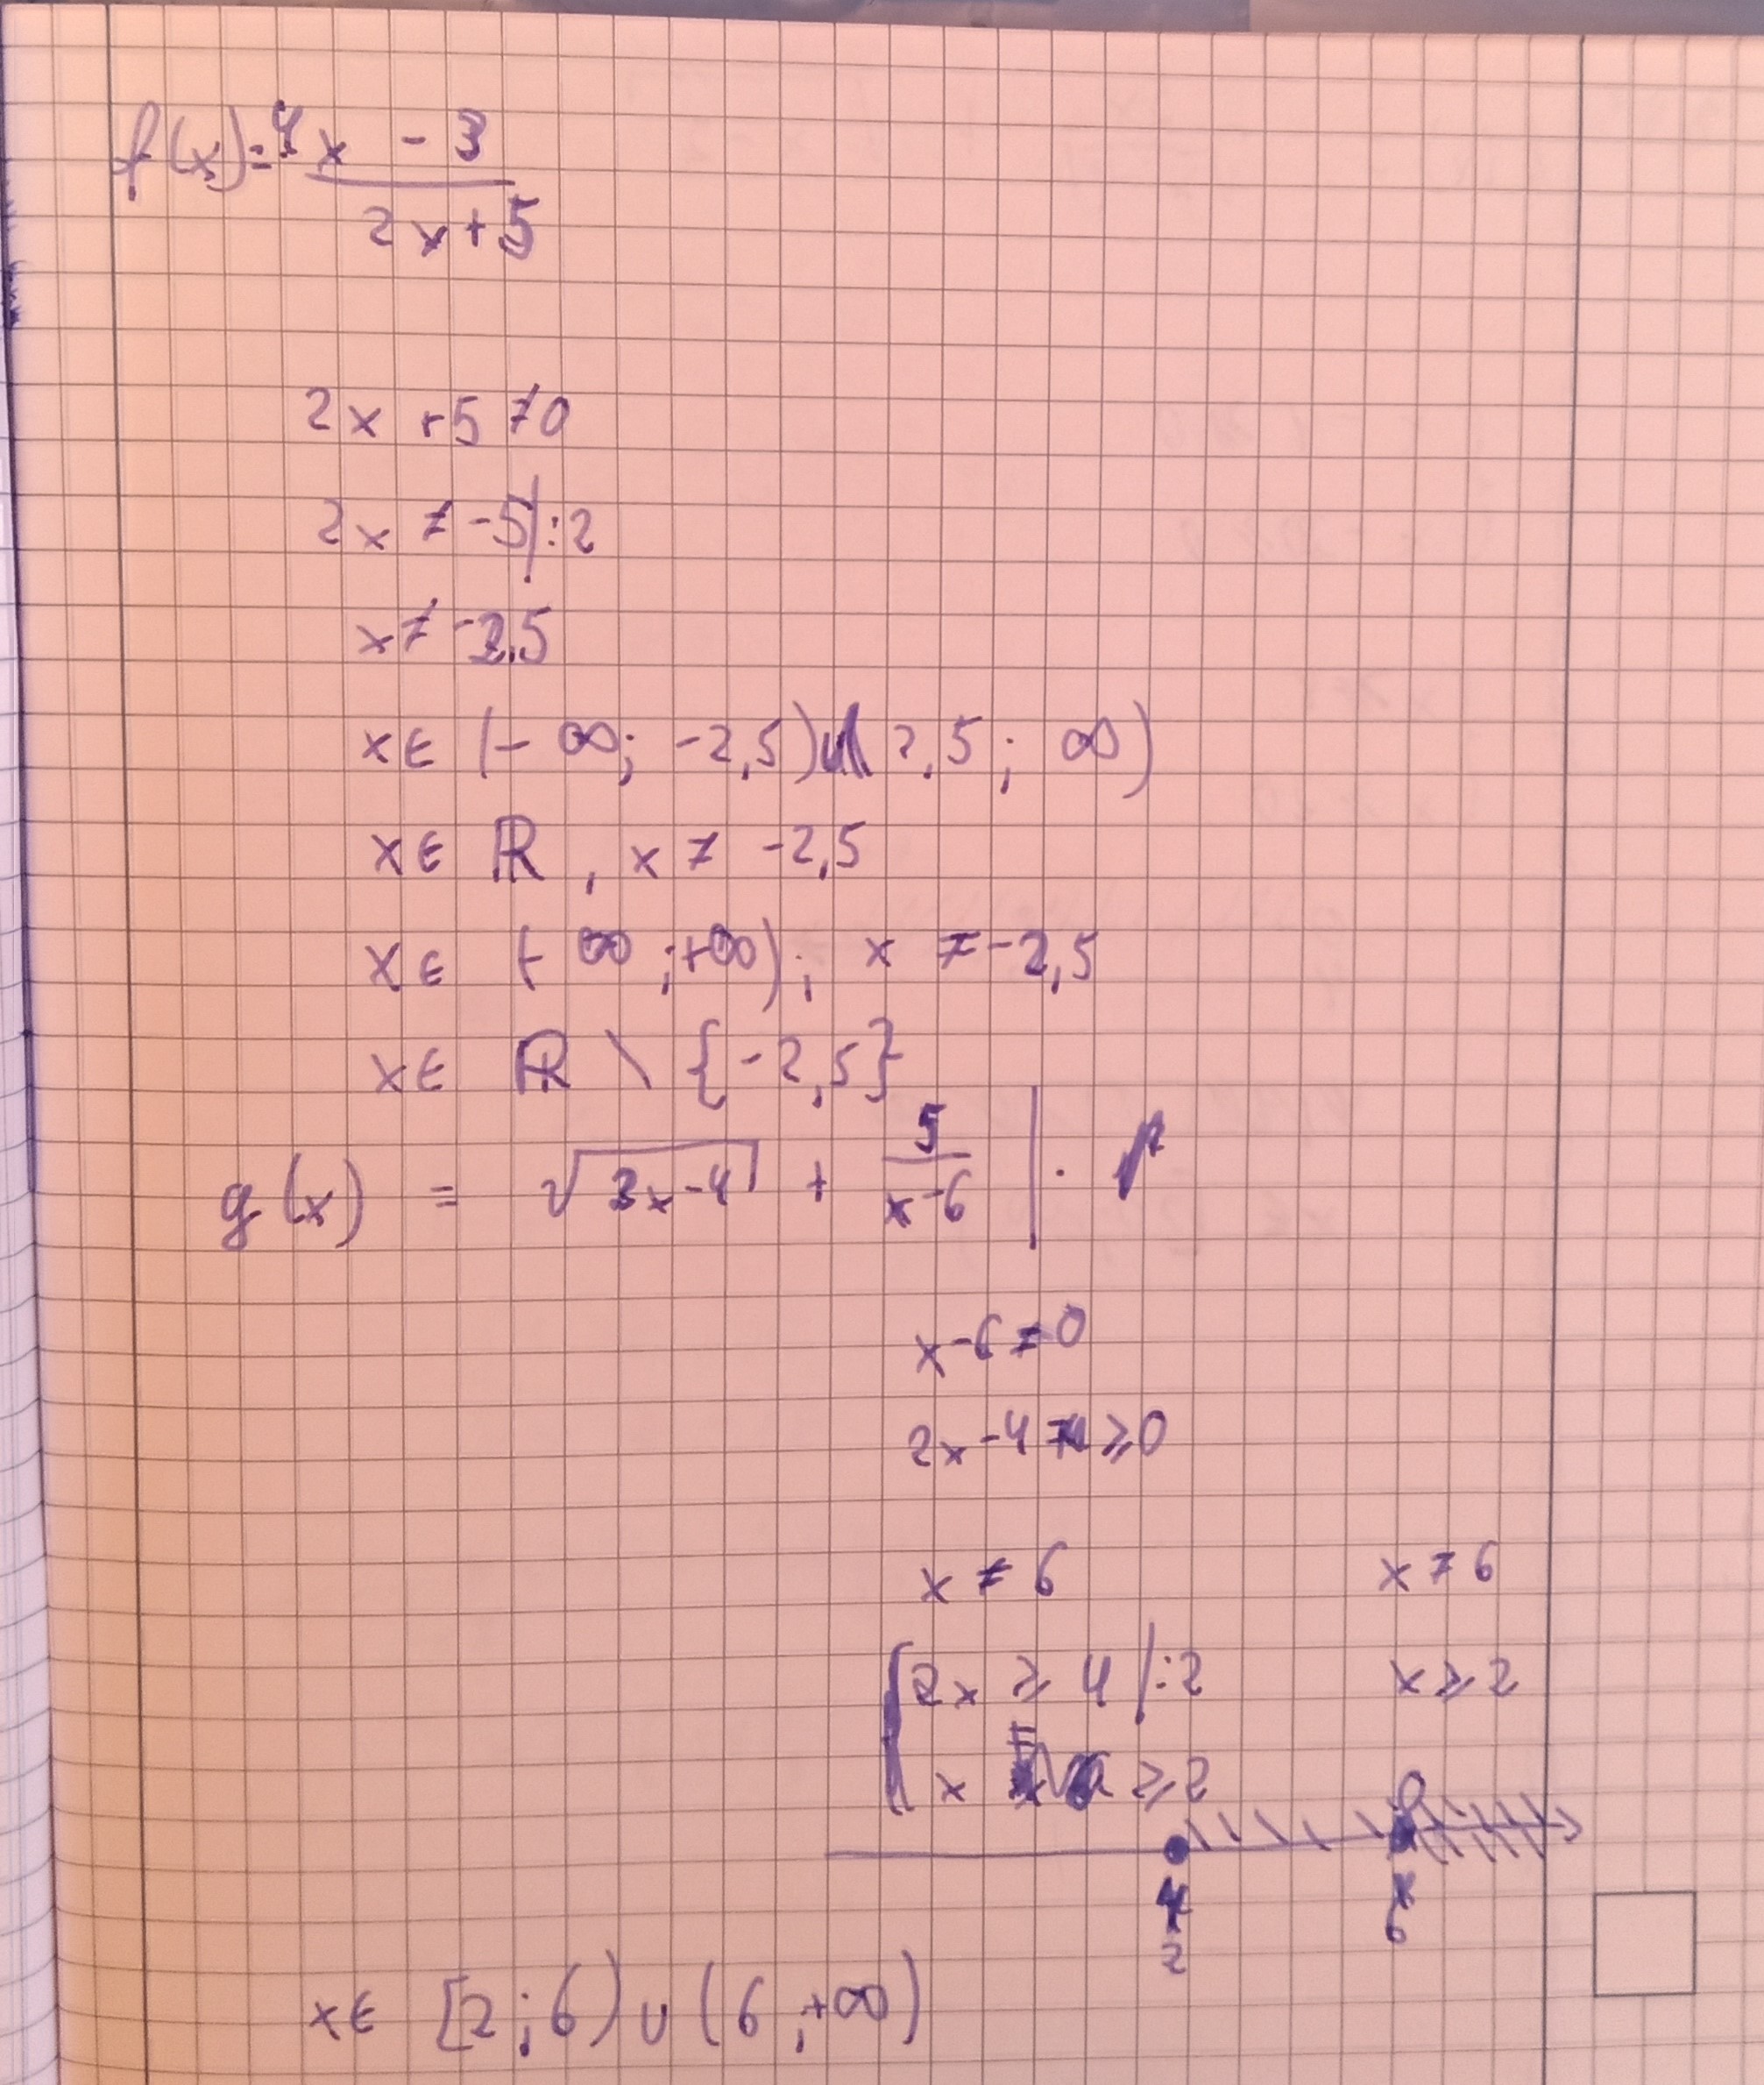 f(x)=4x - 3
2x+5
2x +5 ≠0
2x ≠ -5|:2
x≠ -2,5
x∈ (- ∞; -2,5)∪( 2,5; ∞)
x∈ ℝ, x ≠ -2,5
x∈ (-∞;+∞); x ≠ -2,5
x∈ ℝ \ {-2,5}
g(x) = √2x-4 + 5/x-6 | ·
x-6≠0
2x-4 ≥0
x ≠ 6 x ≠ 6
2x ≥ 4 |:2 x ≥ 2
x ≥2
2 6
x∈ [2;6)∪(6;+∞)